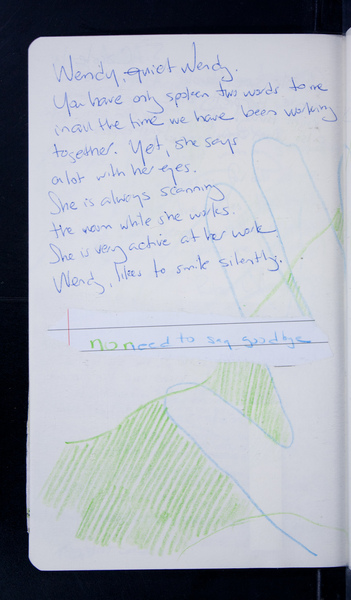 Wendy, quiet Wendy.
You have only spoken two words to me
in all the time we have been working
together. Yet, she says
a lot with her eyes.
She is always scanning
the room while she works.
She is very active at her work
Wendy, likes to smile silently.
no need to say goodbye